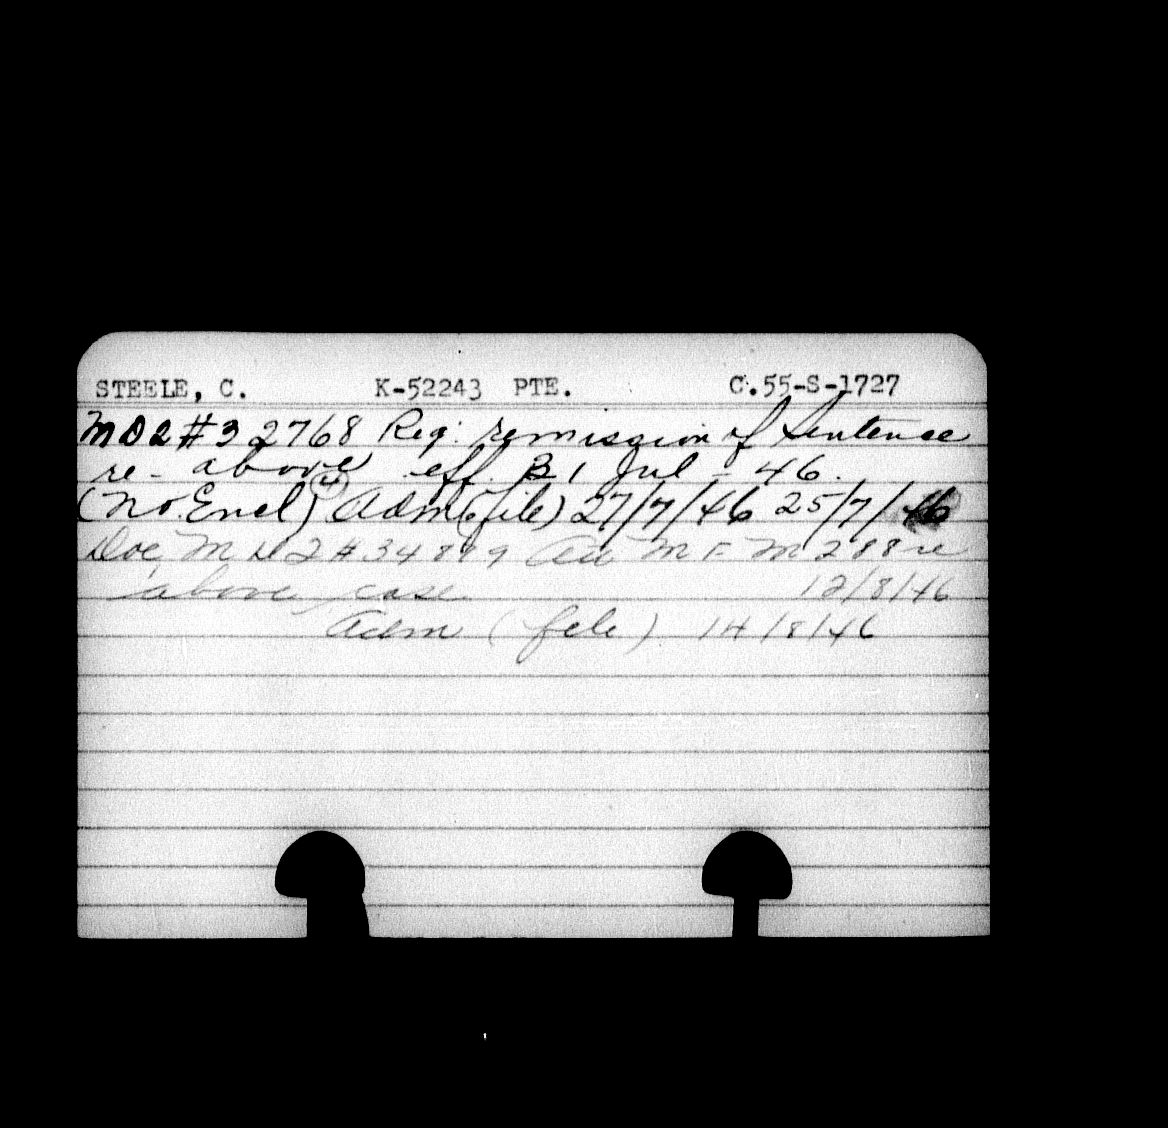 STEELE, C. K-52243 PTE. C.55-S-1727
MD2 #32768 Req. remission of sentence
re- above eff. 31 Jul - 46.
(No. Encl) Adm (file) 27/7/46 25/7/46
Doc MD2 #34899 MFM 288 re
above case 12/8/46
Adm (file) 14/8/46